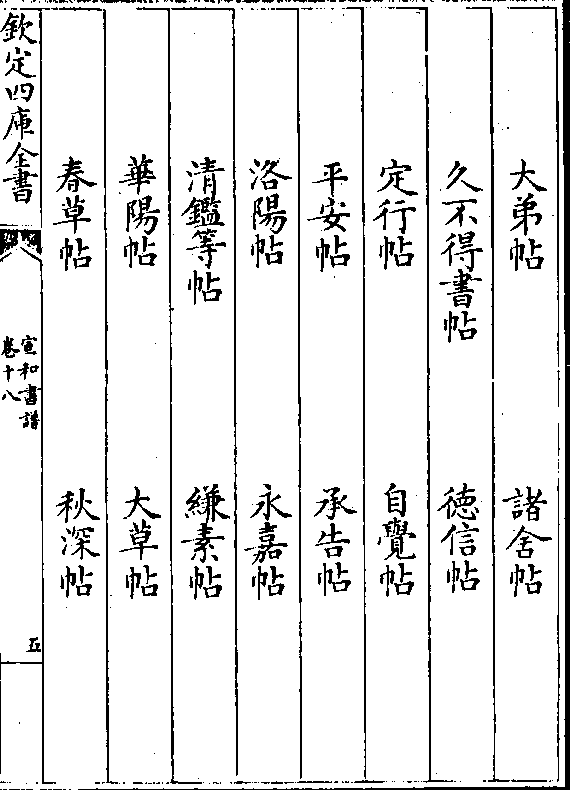 大弟帖 諸舍帖
久不得書帖 徳信帖
定行帖 自覺帖
平安帖 承告帖
洛陽帖 永嘉帖
清鑑等帖 縑素帖
華陽帖 大草帖
春草帖 秋深帖
欽定四庫全書
宣和書譜
卷十八
五